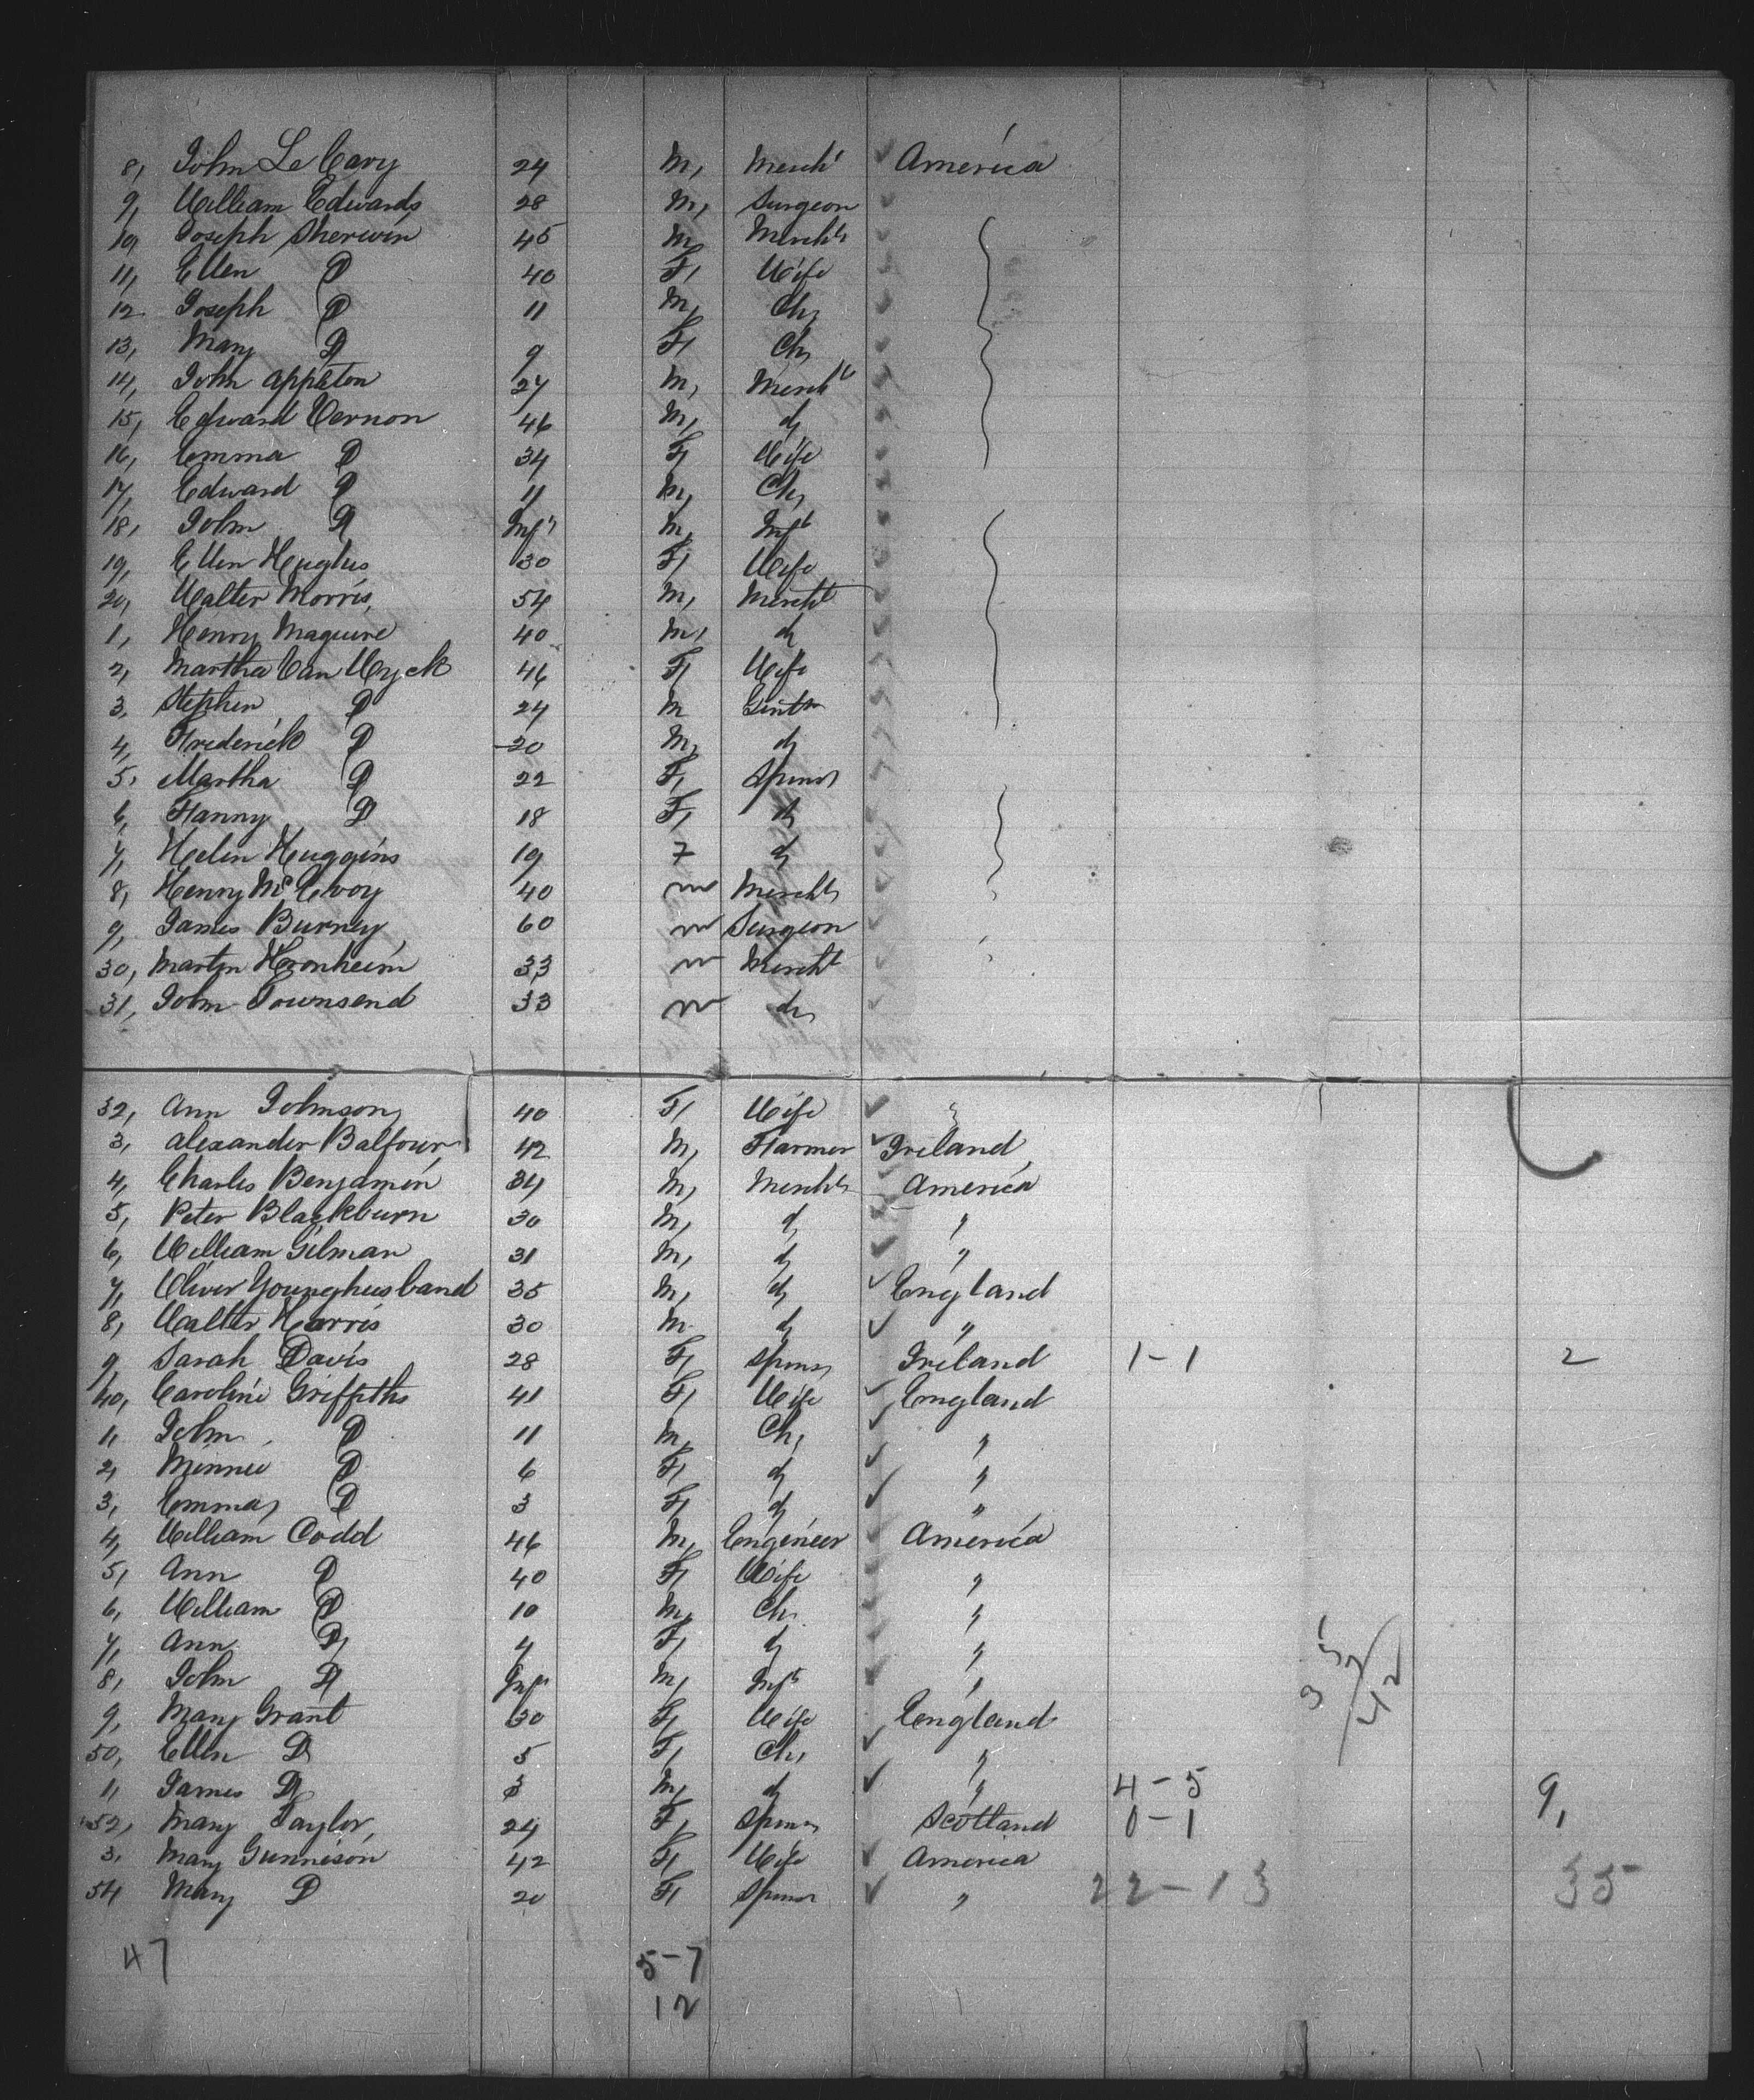 8, John Le Cary 24 M, Merch' America
9, William Edwards 28 M, Surgeon
10, Joseph Sherwin 45 M Mercht
11, Ellen D 40 F, Wife
12 Joseph D 11 M, Ch,
13, Mary D 9 F, Ch,
14, John Appleton 27 M, Mercht
15, Edward Vernon 46 M, d,
16, Emma D 34 F, Wife
17, Edward D 11 M, Ch,
18, John D Inft M, Inft
19, Ellen Hughes 30 F, Wife
20, Walter Morris, 54 M, Mercht
1, Henry Maguire 40 M, d,
2, Martha Van Wyck 46 F, Wife
3, Stephen D 24 M Gentn
4, Frederick D 20 M, d,
5, Martha D 22 F, Spinsr
6, Fanny D 18 F, d,
7, Helen Huggins 19 F d,
8, Henry McEvoy 40 M Mercht
9, James Burney 60 M Surgeon
30, Martin Heronheim 33 M Mercht
31, John Townsend 33 M d,
32, Ann Johnson, 40 F, Wife
3, Alexander Balfour 42 M, Farmer Ireland
4, Charles Benjamin 34 M, Mercht America
5, Peter Blackburn 30 M, d, "
6, William Gilman 31 M, d, "
7, Oliver Younghusband 35 M, d, England
8, Walter Harris 30 M d, "
9, Sarah Davis 28 F, Spinsr Ireland 1-1 2
40, Caroline Griffiths 41 F, Wife England
1, John D 11 M, Ch, "
2, Minnie D 6 F, d, "
3, Emma, D 3 F, d, "
4, William Codd 46 M, Engineer America
5, Ann D 40 F, Wife "
6, William D 10 M, Ch, "
7, Ann D, 4 F, d, "
8, John D Inft M, Inft "
9, Mary Grant 30 F, Wife England
50, Ellen D 5 F, Ch, "
1, James D 3 M, d, " 4-5 9,
52, Mary Taylor, 24 F, Spinsr Scotland 0-1
3, Mary Gunnison 42 F, Wife America
54 Mary D 20 F, Spinsr " 22-13 35
47 5-7
12